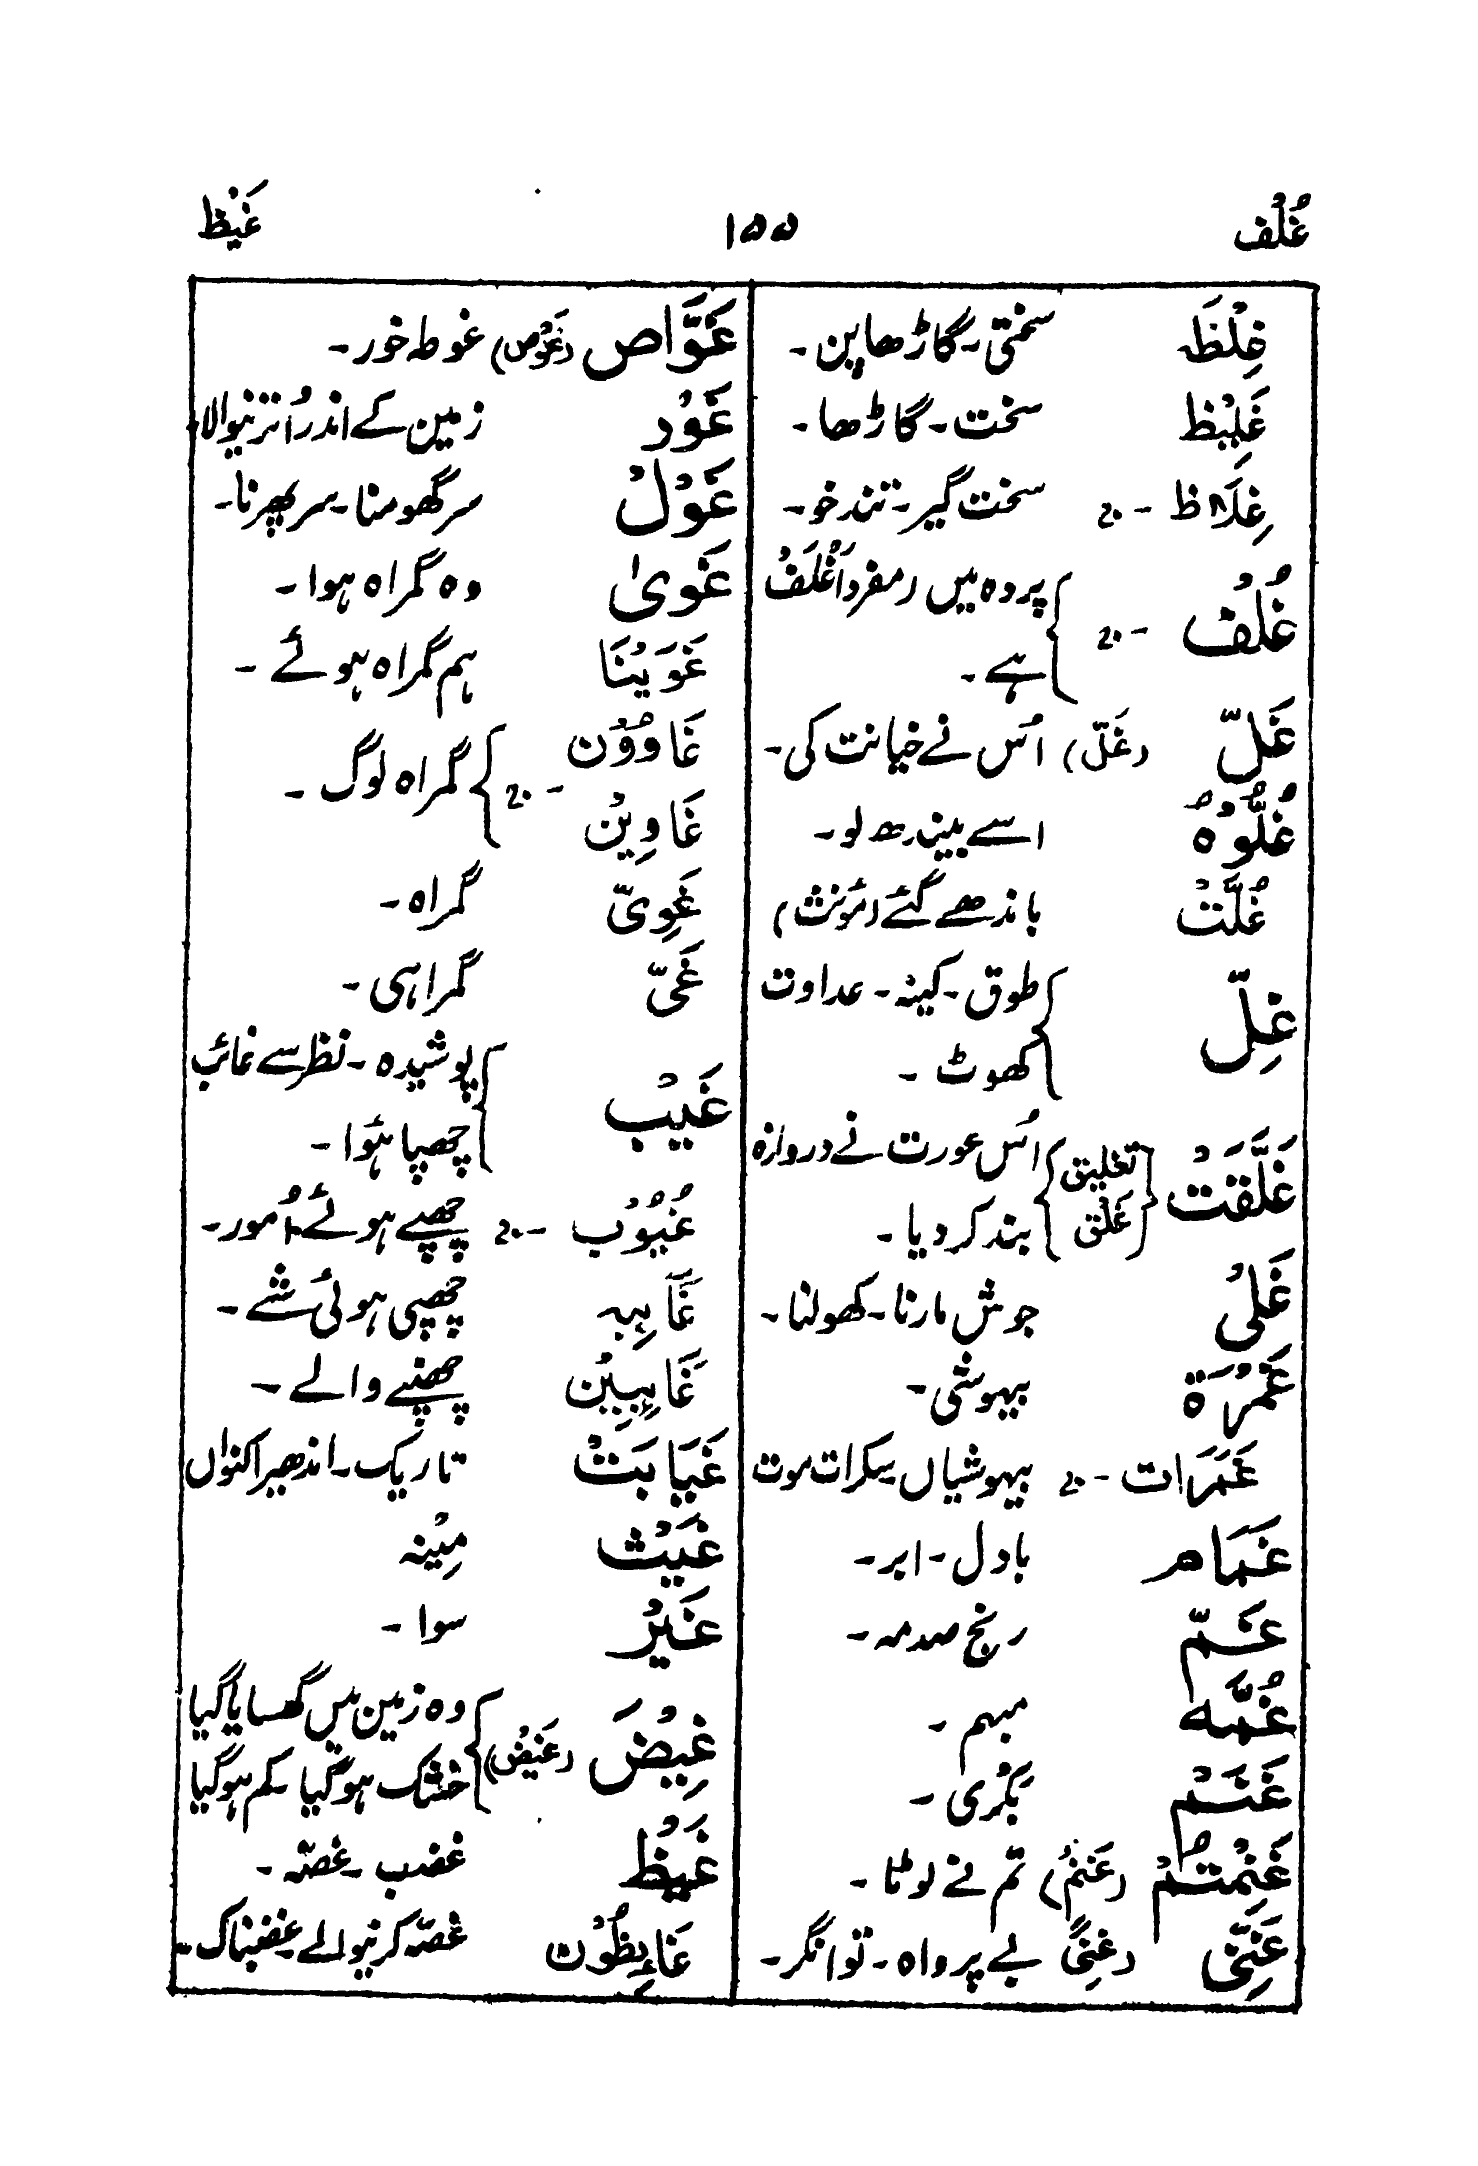 غُلْف ۱۵۵ غَیْظ
غِلْظَ سختی۔ گاڑھاپن۔
غَلِیْظ سخت۔ گاڑھا۔
غِلَاظ ۔ ج سخت گیر۔ تندخو۔
غُلْفُ ۔ ج پردہ میں (مفرد اَغْلَفُ
ہے۔
غَلَّ (غَلّ) اُس نے خیانت کی۔
غُلُّوْہُ اسے بیندھ لو۔
غُلَّتْ باندھے گئے (مؤنث)
غِلّ طوق۔ کینہ۔ عداوت
کھوٹ۔
غَلَّقَتْ تغلیق غَلْق اُس عورت نے دروازہ
بند کر دیا۔
غَلْیُ جوش مارنا۔ کھولنا۔
غَمْرَۃ بیہوشی۔
غَمَرَات ۔ ج بیہوشیاں سکرات موت
غَمَام بادل۔ ابر۔
غَمّ رنج صدمہ۔
غُمَّہ مبہم۔
غَنَمْ بکری۔
غَنِمْتُمْ (غَنَمْ) تم نے لوٹا۔
غَنِیّ (غِنیً) بے پرواہ۔ توانگر۔
غَوَّاص (غَوْص) غوطہ خور۔
غَوْر زمین کے اندر اُترنیوالا
غَوْلُ سر گھومنا۔ سر پھرنا۔
غَویٰ وہ گمراہ ہوا۔
غَوَیْنَا ہم گمراہ ہوئے۔
غَاوُوْن
غَاوِیْن ۔ ج گمراہ لوگ۔
غَوِیّ گمراہ۔
غَیّ گمراہی۔
غَیْب پوشیدہ۔ نظر سے غائب
چھپا ہؤا۔
غُیُوْب ۔ ج چھپے ہوئے اُمور۔
غَآیِبہ چھپی ہوئی شے۔
غَآیِبِیْن چھپنے والے۔
غَیَابَتْ تاریک۔ اندھیرا کنواں
غَیْث مِیْنہ
غَیْرُ سوا۔
غِیْضَ (غَیْض) وہ زمین میں گھسایا گیا
خشک ہوگیا۔ کم ہوگیا
غَیْظُ غضب۔ غصّہ۔
غَاءِظُوْن غصّہ کرنیوالے۔ غضبناک۔